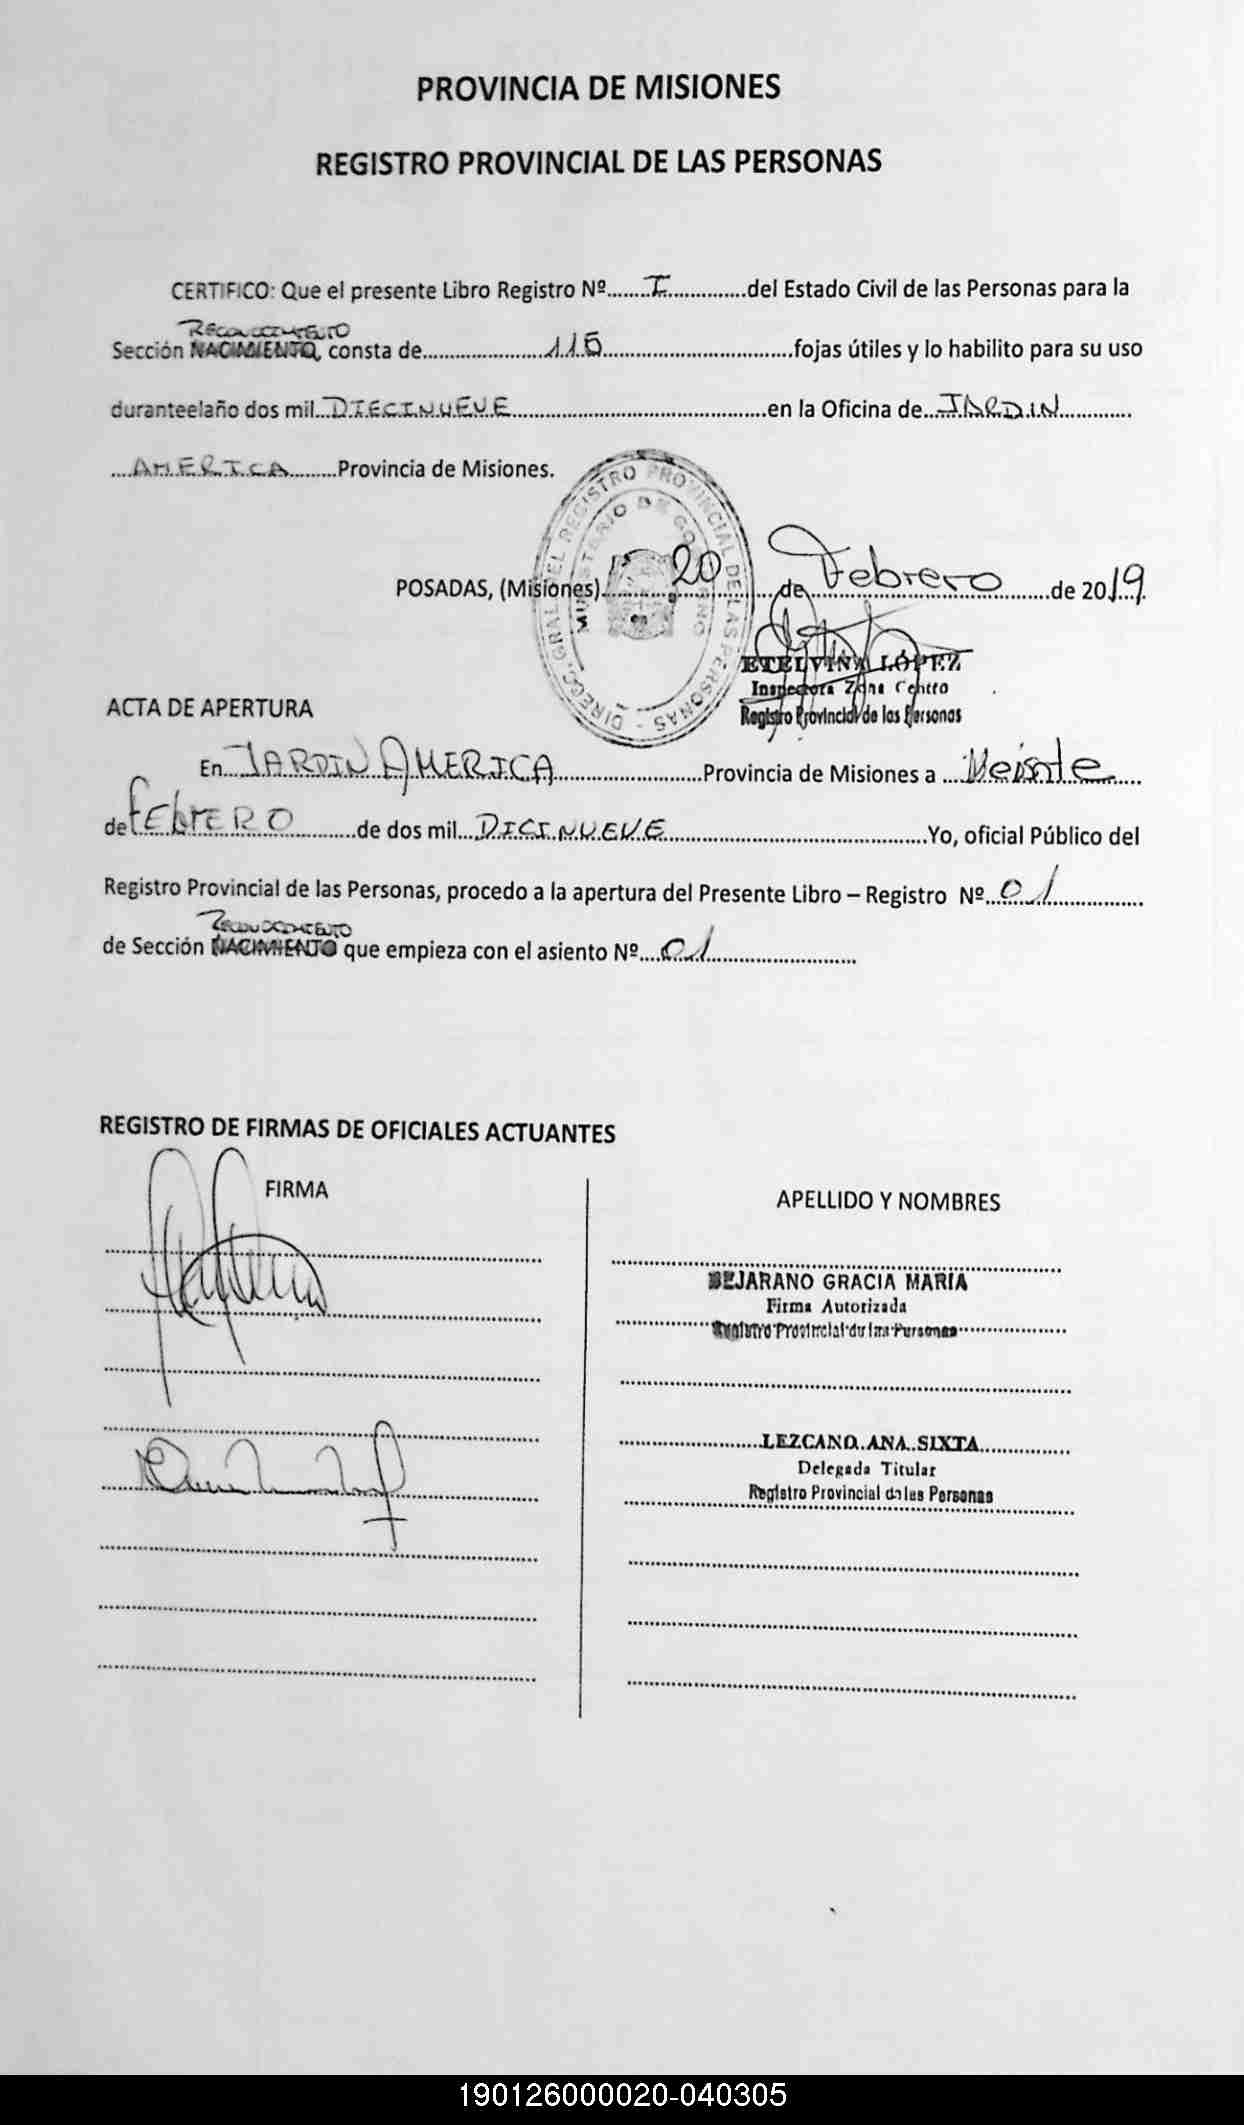 PROVINCIA DE MISIONES
REGISTRO PROVINCIAL DE LAS PERSONAS
CERTIFICO: Que el presente Libro Registro Nº.......I..............del Estado Civil de las Personas para la
RECONOCIMIENTO
Sección NACIMIENTO, consta de......................115................................fojas útiles y lo habilito para su uso
duranteelaño dos mil...DIECINUEVE...........................................en la Oficina de...JARDIN.............
....AMERICA.........Provincia de Misiones.
DIREC. GRAL. DEL REGISTRO PROVINCIAL DE LAS PERSONAS
MINISTERIO DE GOBIERNO
POSADAS, (Misiones)............20............de...Febrero..........de 2019.
ETELVINA LÓPEZ
Inspectora Zona Centro
Registro Provincial de las Personas
ACTA DE APERTURA
En...JARDIN AMERICA.........................Provincia de Misiones a ...Veinte.....
de FEBRERO...........de dos mil...DICINUEVE.............................................Yo, oficial Público del
Registro Provincial de las Personas, procedo a la apertura del Presente Libro – Registro Nº...01...............
RECONOCIMIENTO
de Sección NACIMIENTO que empieza con el asiento Nº....01..........................
REGISTRO DE FIRMAS DE OFICIALES ACTUANTES
FIRMA
APELLIDO Y NOMBRES
BEJARANO GRACIA MARIA
Firma Autorizada
Registro Provincial de las Personas
LEZCANO ANA SIXTA
Delegada Titular
Registro Provincial de las Personas
190126000020-040305